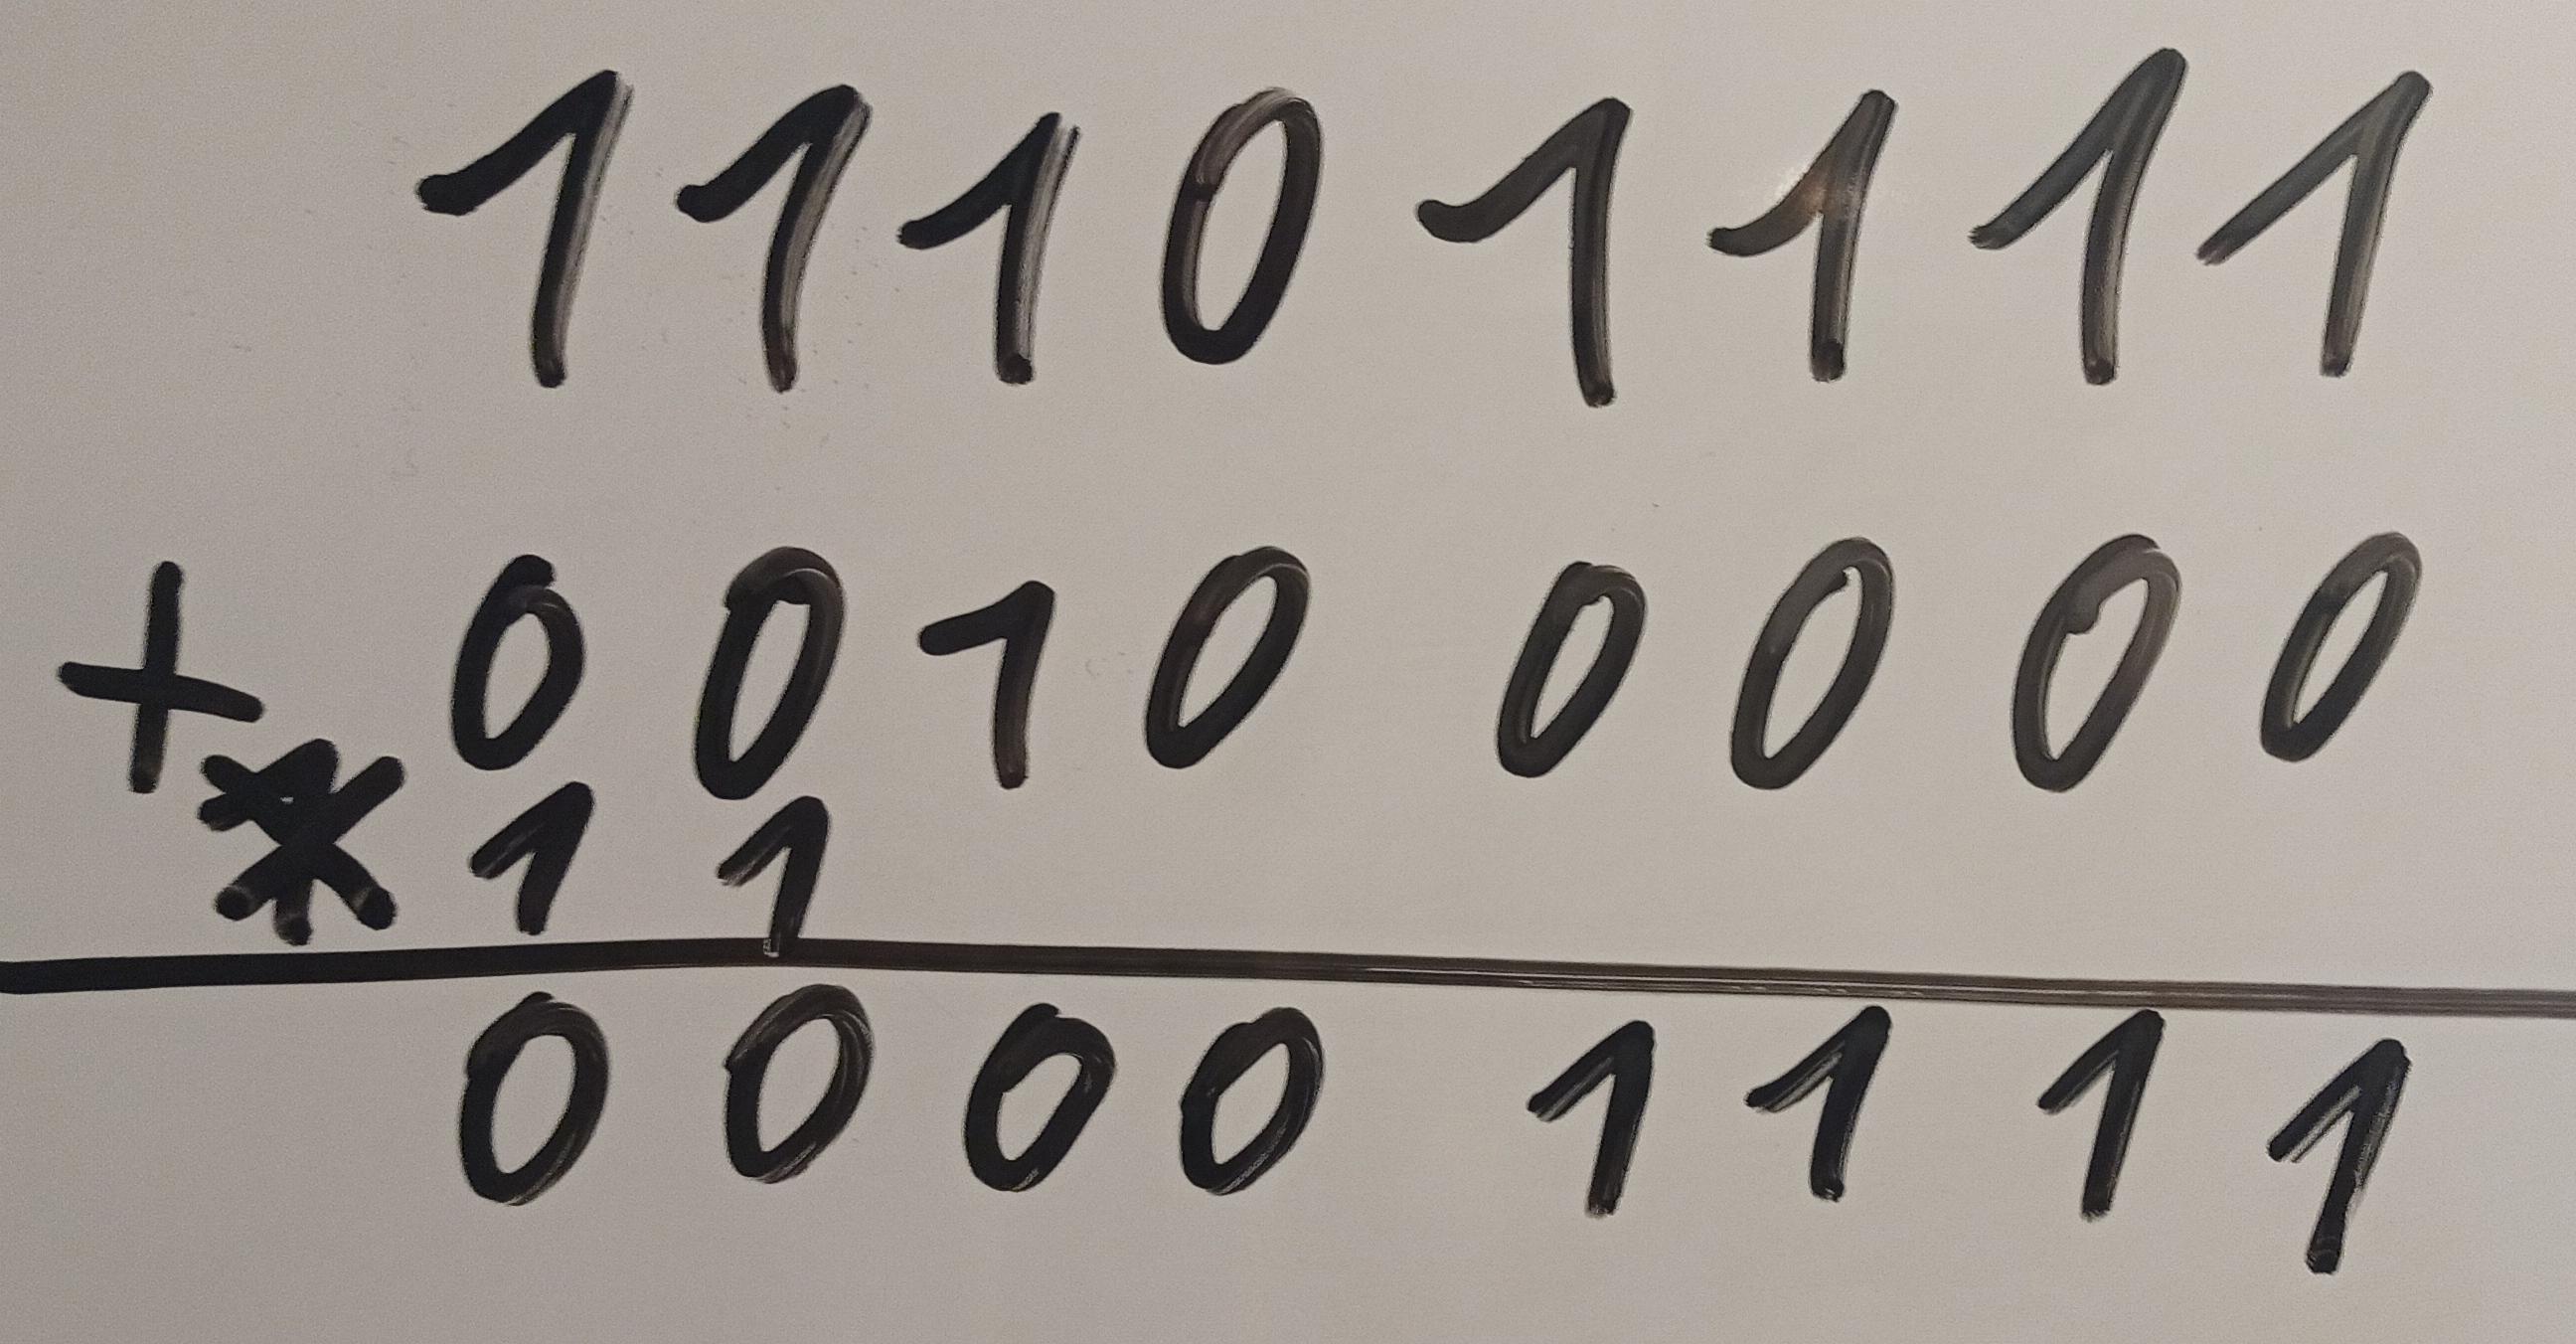 1110 1111
+ 0010 0000
* 11
0000 1111